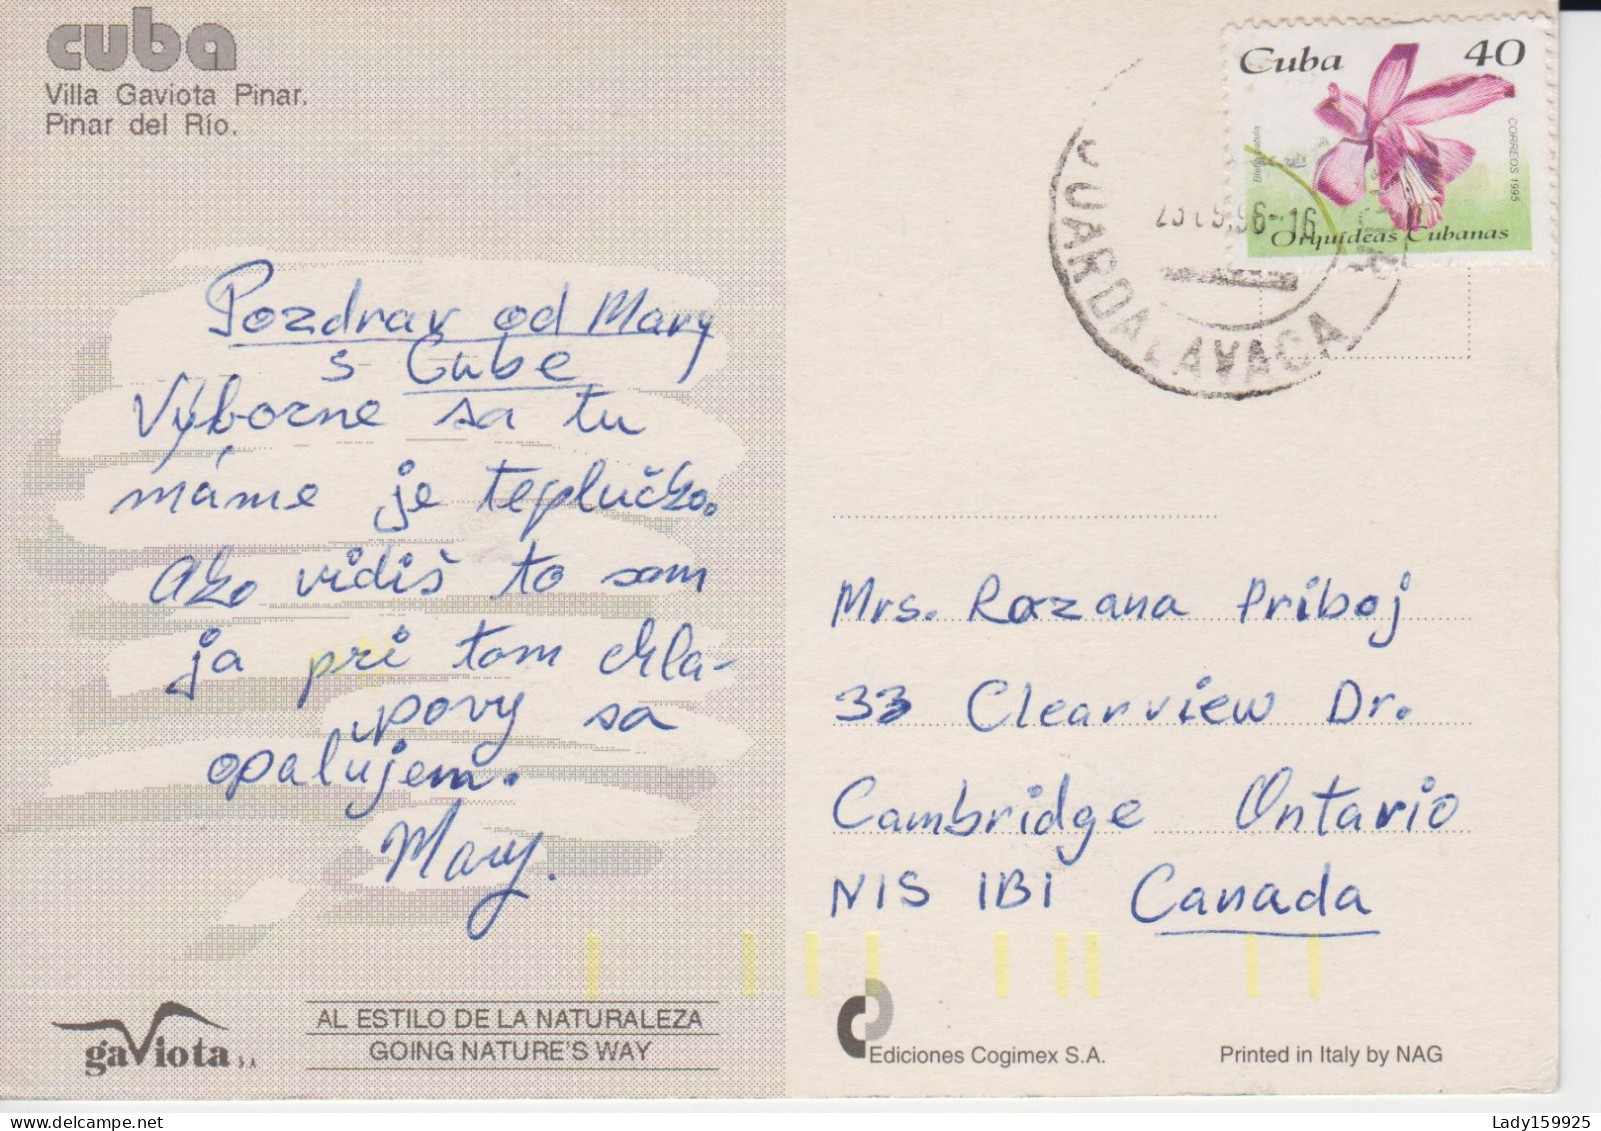 cuba
Villa Gaviota Pinar.
Pinar del Río.
Pozdrav od Mary
s Cube
Výborne sa tu
máme je teplučko.
Ako vidiš to som
ja pri tom chla-
povy sa
opaľujem.
Mary.
gaviota S.A
AL ESTILO DE LA NATURALEZA
GOING NATURE'S WAY
Cuba 40
Bletia patula
CORREOS 1995
Orquídeas Cubanas
96-16
GUARDALAVACA
Mrs. Rozana Priboj
33 Clearview Dr.
Cambridge Ontario
N1S 1B1 Canada
Ediciones Cogimex S.A.
Printed in Italy by NAG
Lady159925